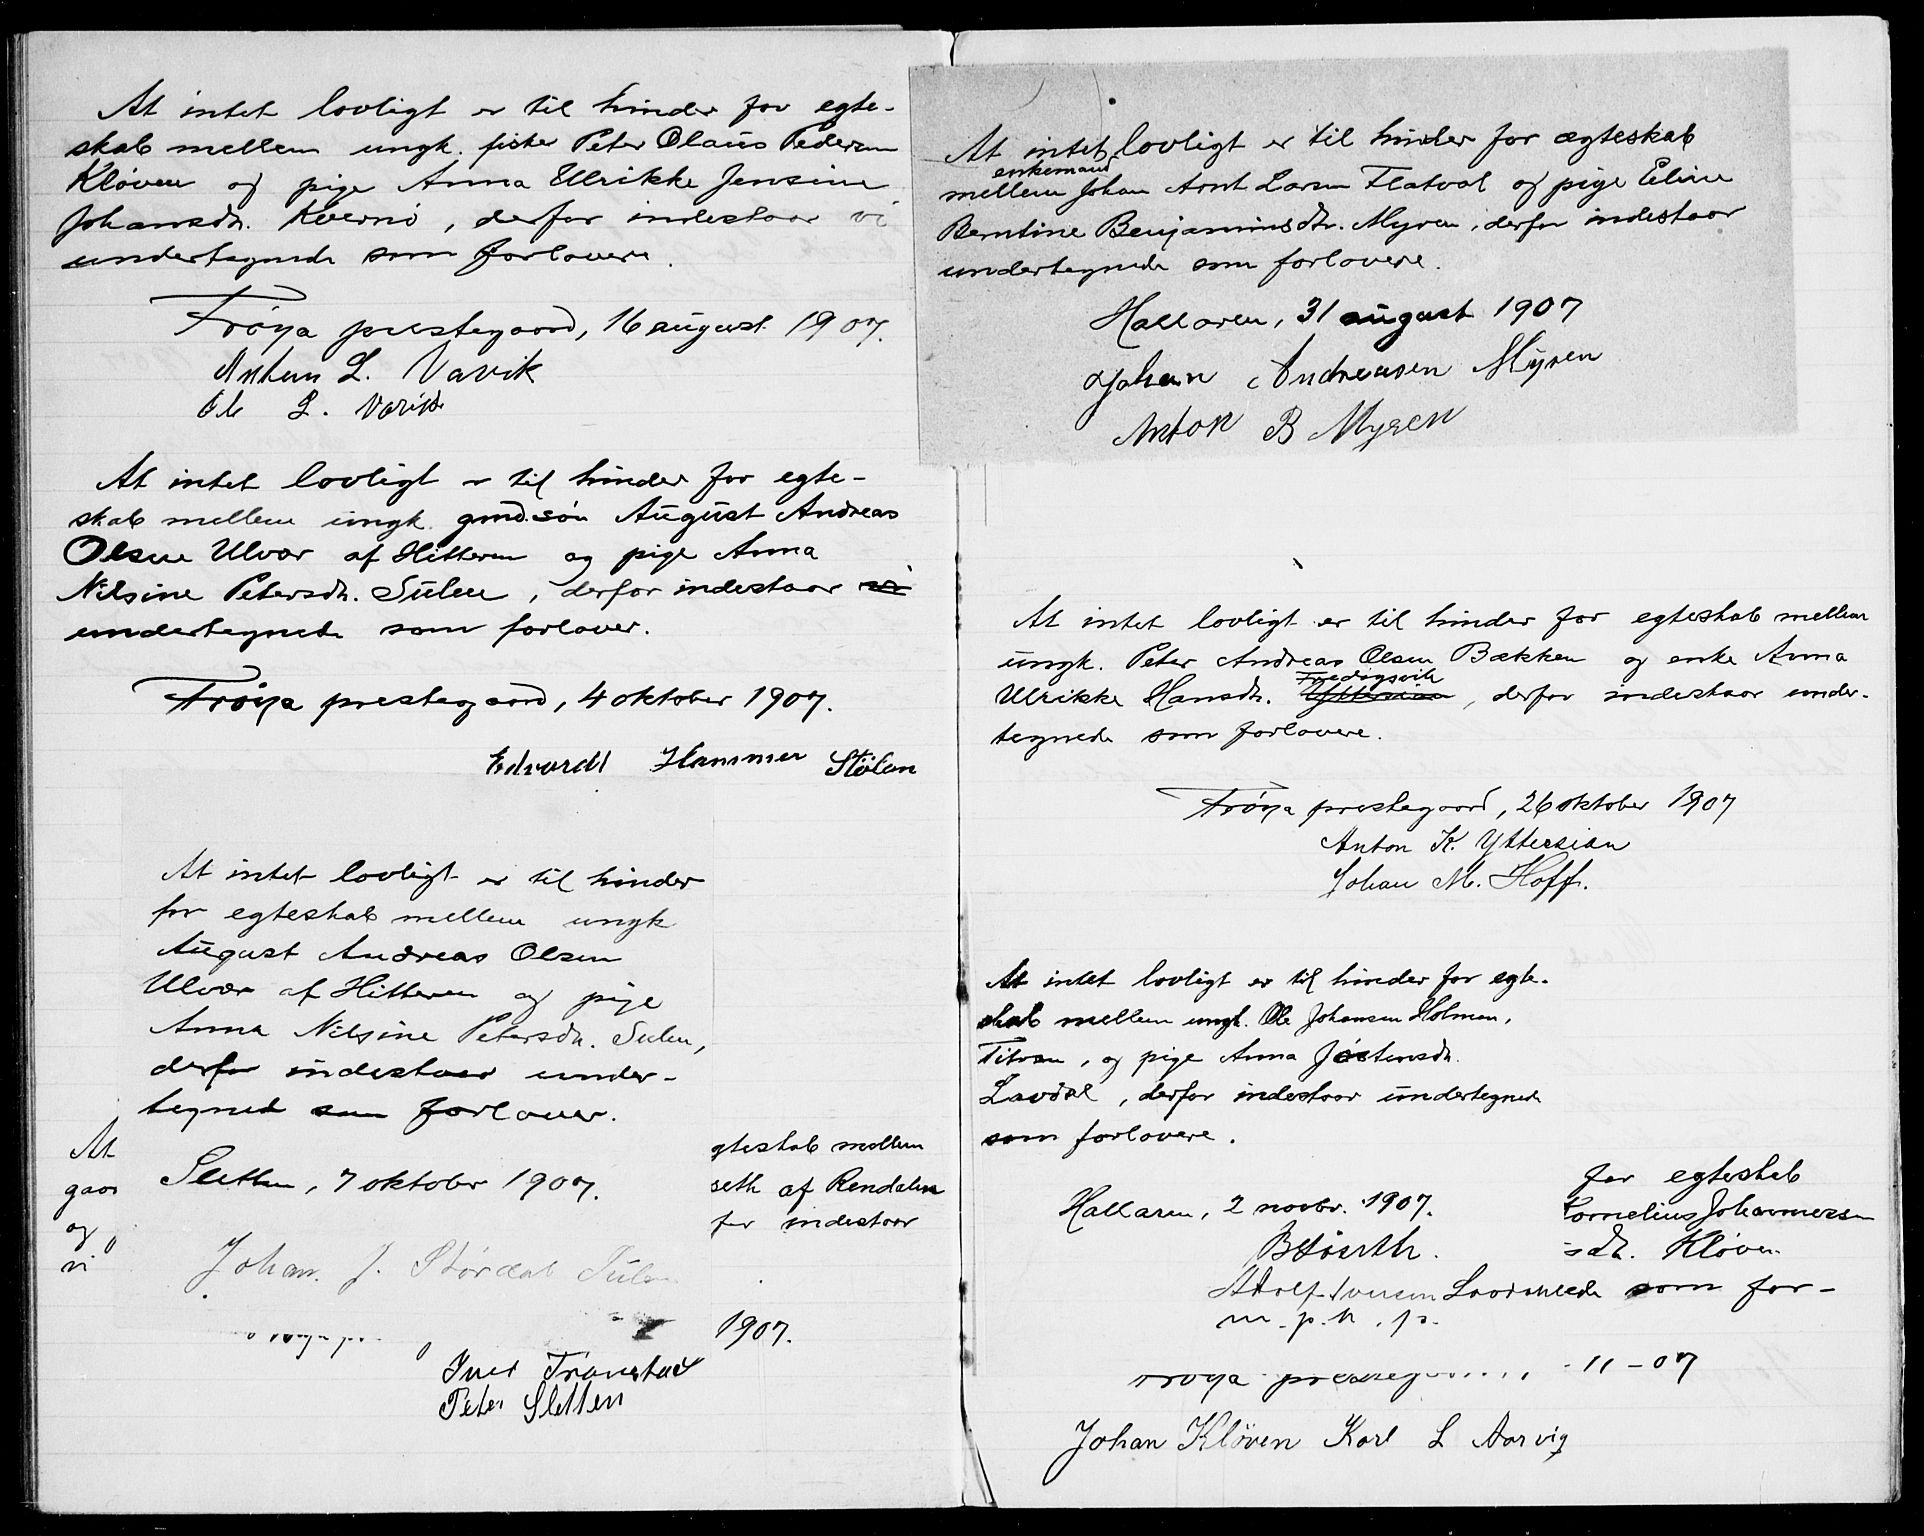 At intet lovligt er til hinder for egte-
skab mellem ungk. fisker Peter Olaus Pedersen
Kløven og pige Anna Ulrikke Jensine
Johansdtr. Kvernø, derfor indestaar vi
undertegnede som forlovere.
Frøya prestegaard, 16 august 1907.
L. Vavik
Ole L. Vavik
At intet lovligt er til hinder for egte-
skab mellem ungk. gmd.søn August Andreas
Olsen Ulvær af Hitteren og pige Anna
Nilsine Petersdtr. Sulen, derfor indestaar vi
undertegnede som forlover.
Frøya prestegaard, 4 oktober 1907.
Edvardt Hammer Stølan
At intet lovligt er til hinder
for egteskab mellem ungk
August Andreas Olsen
Ulvær af Hitteren og pige
Anna Nilsine Petersdtr. Sulen,
derfor indestaar under-
tegnede som forlover.
Sletten, 7 oktober 1907.
Johan J. Størdal Sulen
At
gaar
og
vi
gteskab mellem
seth af Rendalen
for indestaar
1907.
Iver Transtad
Peter Sletten
At intet lovligt er til hinder for ægteskab
enkemand
mellem Johan Arnt Larsen Flatval og pige Eline
Berntine Benjaminsdtr. Myren, derfor indestaar
undertegnede som forlovere.
Hallaren, 31 august 1907
Johan Andreasen Myren
Anton B Myren
At intet lovligt er til hinder for egteskab mellem
ungk. Peter Andreas Olsen Bækken og enke Anna
Fredagsvik
Ulrikke Hansdtr. Yttersian, derfor indestaar under-
tegnede som forlovere.
Frøya prestegaard, 26 oktober 1907
Anton K. Yttersian
Johan M. Hoff.
At intet lovligt er til hinder for egte-
skab mellem ungk. Ole Johansen Holmen,
Titran, og pige Anna Jostensdtr.
Lavdal, derfor indestaar undertegnede
som forlovere.
Hallaren, 2 novbr. 1907.
Adolf Iversen
m. p. p.
for egteskab
Kornelius Johannessen
sdtr. Kløven
som for-
Frøya 11-07
Johan Kløven Karl L Aarvig